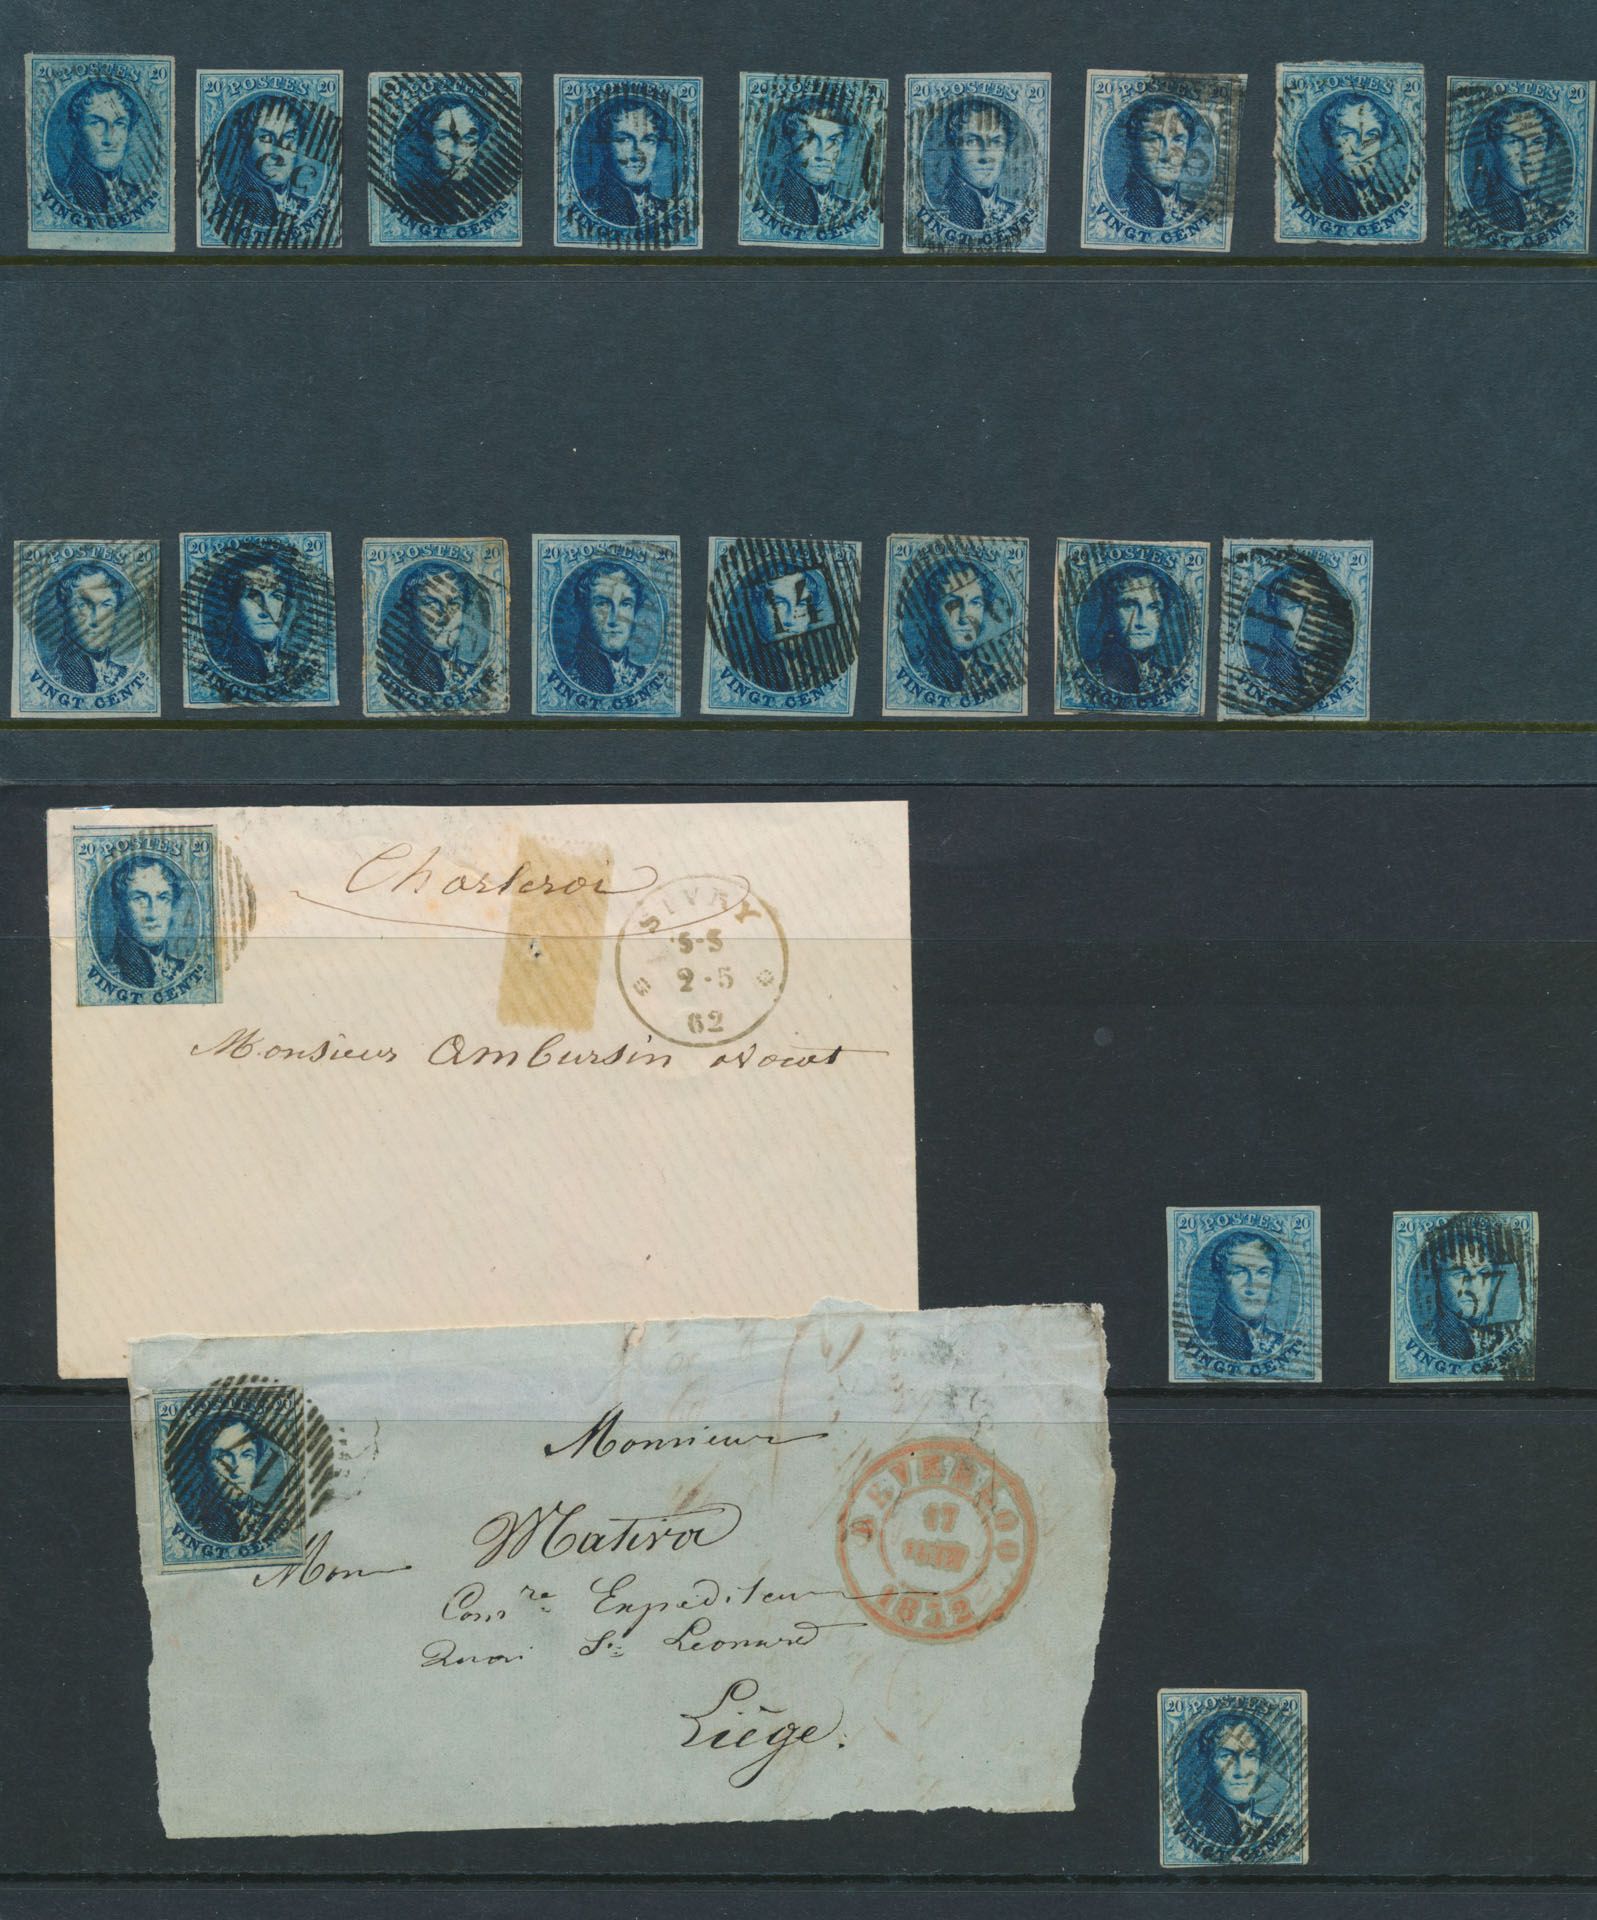 20 POSTES 20
VINGT CENTS
20 POSTES 20
VINGT CENTS
20 POSTES 20
VINGT CENTS
20 POSTES 20
VINGT CENTS
20 POSTES 20
VINGT CENTS
20 POSTES 20
VINGT CENTS
20 POSTES 20
VINGT CENTS
20 POSTES 20
VINGT CENTS
20 POSTES 20
VINGT CENTS
20 POSTES 20
VINGT CENTS
20 POSTES 20
VINGT CENTS
20 POSTES 20
VINGT CENTS
20 POSTES 20
VINGT CENTS
20 POSTES 20
14
VINGT CENTS
20 POSTES 20
VINGT CENTS
20 POSTES 20
VINGT CENTS
20 POSTES 20
VINGT CENTS
20 POSTES 20
VINGT CENTS
Charleroi
SIVRY
S-S
2-5
62
Monsieur Ambursin Avocat
20 POSTES 20
VINGT CENTS
20 POSTES 20
VINGT CENTS
20 POSTES 20
VINGT CENTS
Monsieur
Mon Mativa
Comre Expéditeur
Quai St Leonard
Liège.
17
1852
20 POSTES 20
VINGT CENTS